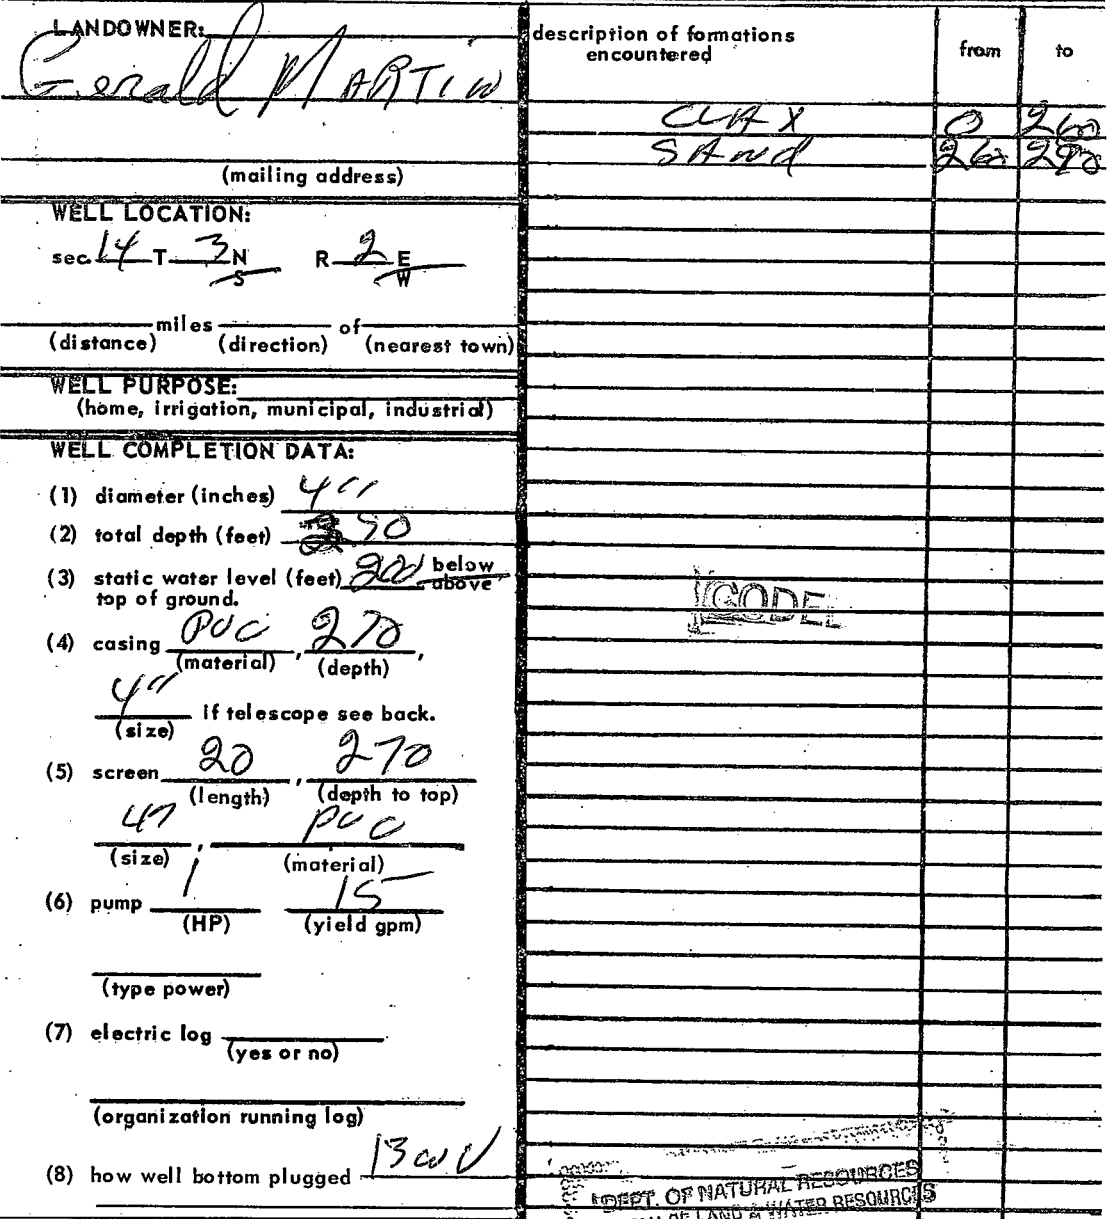 LANDOWNER:
Gerald MARTIN
(mailing address)
WELL LOCATION:
sec. 14 T 3 N S R 2 E W
miles of
(distance) (direction) (nearest town)
WELL PURPOSE:
(home, irrigation, municipal, industrial)
WELL COMPLETION DATA:
(1) diameter (inches) 4"
(2) total depth (feet) 290
(3) static water level (feet) 200 below above
top of ground.
(4) casing PVC, 270,
(material) (depth)
4" if telescope see back.
(size)
(5) screen 20, 270
(length) (depth to top)
4", PVC
(size) (material)
(6) pump 1 15
(HP) (yield gpm)
(type power)
(7) electric log
(yes or no)
(organization running log)
(8) how well bottom plugged
description of formations from to
encountered
CLAY 0 260
SAND 260 290
CODED
DEPT. OF NATURAL RESOURCES
OF LAND & WATER RESOURCES